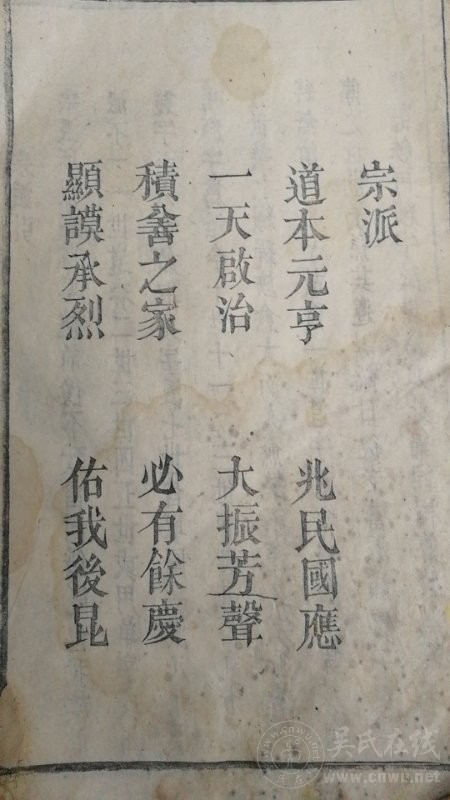 宗派
道本元亨 兆民國應
一天啟治 大振芳聲
積善之家 必有餘慶
顯謨承烈 佑我後昆
吴氏在线
www.cnwu.net